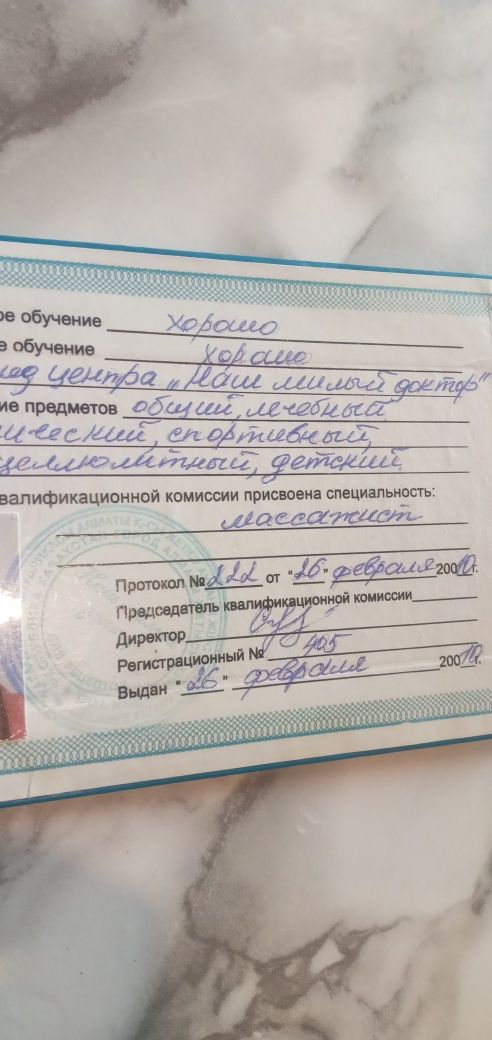 ое обучение хорошо
е обучение хорошо
центра „Наш милый доктор"
ие предметов общий, лечебный
ический, спортивный,
целлюлитный, детский
валификационной комиссии присвоена специальность:
массажист
Протокол № 222 от "26" февраля 20010г.
Председатель квалификационной комиссии
Директор
Регистрационный № 405
Выдан "26" февраля 20010г.
АЛМАТЫ
ГОРОД